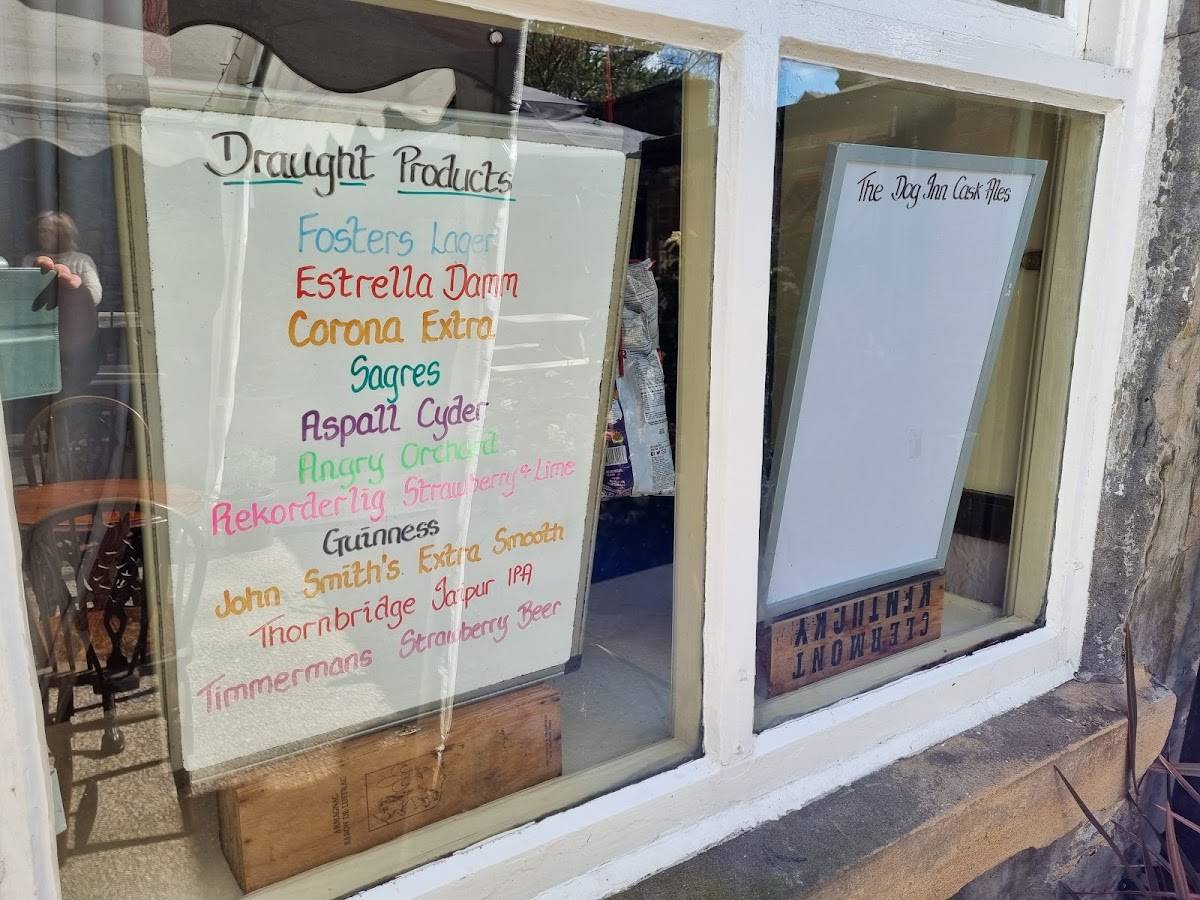 Draught Products
Fosters Lager
Estrella Damm
Corona Extra
Sagres
Aspall Cyder
Angry Orchard
Rekorderlig Strawberry & Lime
Guinness
John Smith's Extra Smooth
Thornbridge Jaipur IPA
Timmermans Strawberry Beer
ARMAGNAC
The Dog Inn Cask Ales
CLERMONT
KENTUCKY